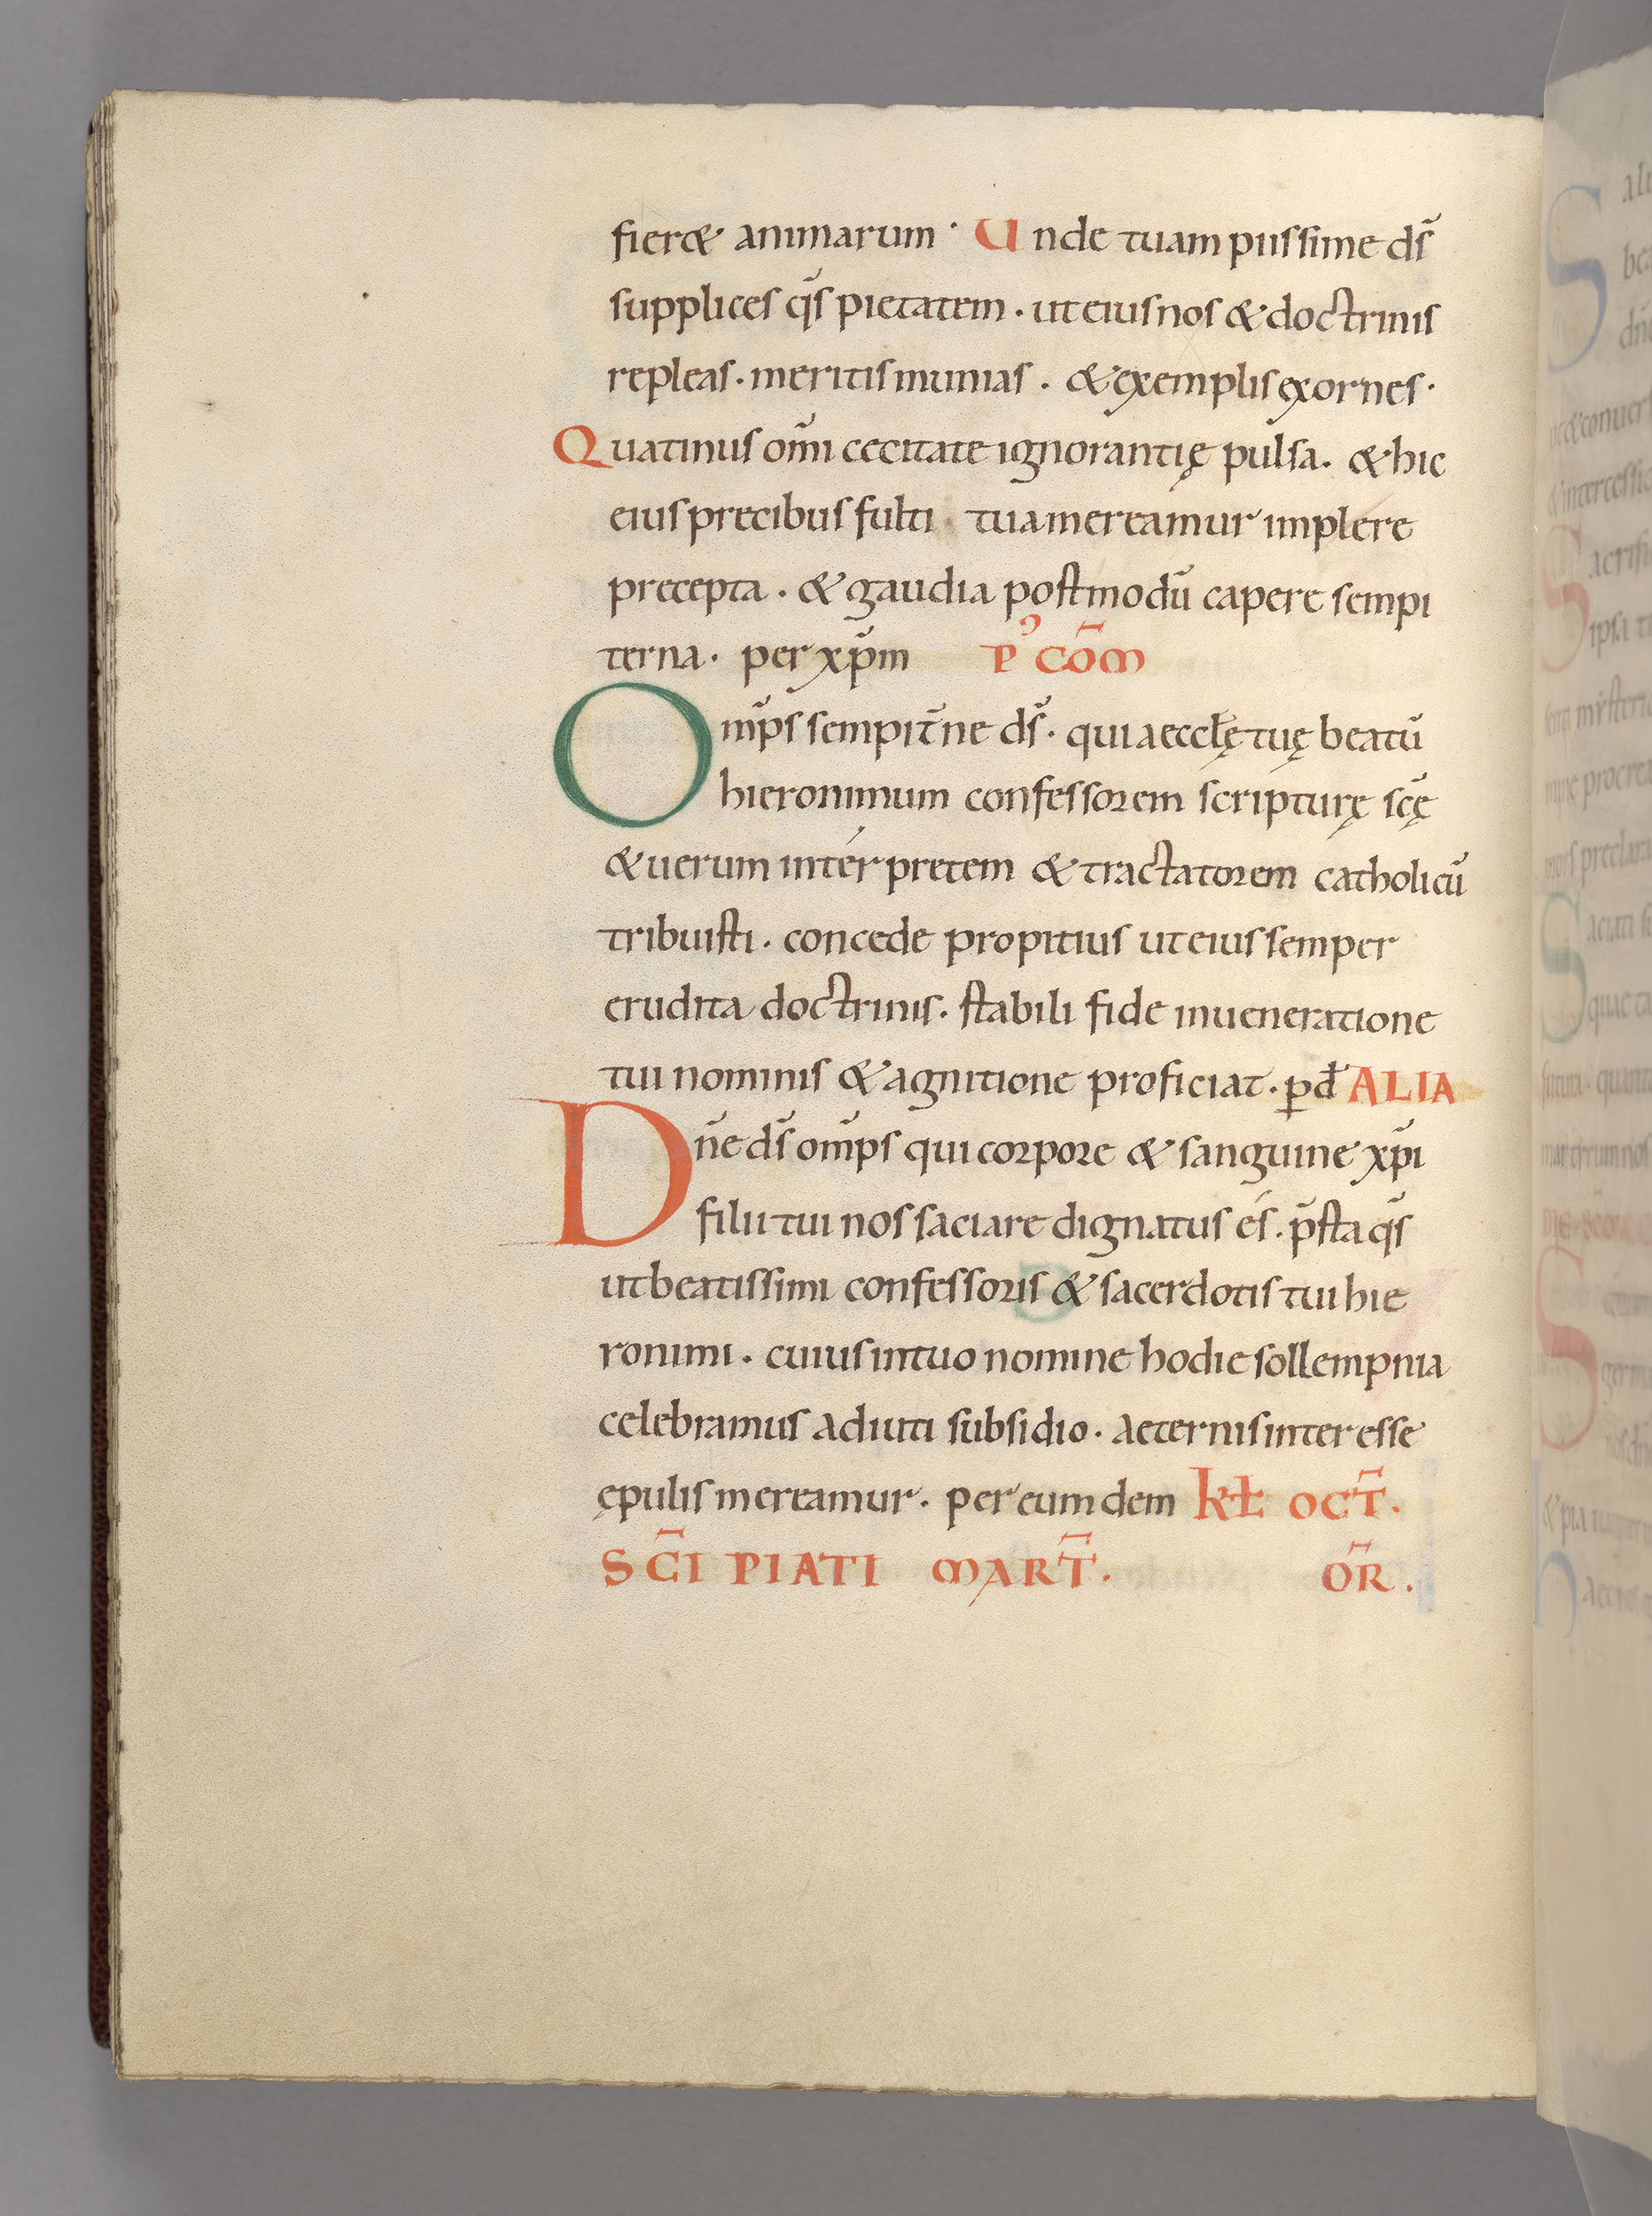 fier& animarum · Unde tuam piissime ds̄
supplices q̄s pietatem · ut eius nos & doctrinis
repleas · meritis munias · & exemplis exornes ·
Quatinus om̄i cecitate ignorantię pulsa · & hic
eius precibus fulti · tua mereamur implere
precepta · & gaudia postmodū capere sempi
terna · per xp̄m P' COM̄
Om̄ps sempit̄ne ds̄ · qui aeccłę tuę beatū
hieronimum confessorem scripturę scę̄
& uerum intérpretem & tractatorem catholicū
tribuisti · concede propitius ut eius semper
erudita doctrinis · stabili fide in ueneratione
tui nominis & agnitione proficiat · ꝑ đ ALIA
Dn̄e ds̄ om̄ps qui corpore & sanguine xp̄i
filii tui nos saciare dignatus és · p̄sta q̄s
ut beatissimi confessoris & sacerdotis tui hie
ronimi · cuius in tuo nomine hodie sollempnia
celebramus adiuti subsidio · aeternis interesse
ępulis mereamur · per eumdem kł OCT̄ ·
SC̄I PIATI MART̄ · OR̄ ·